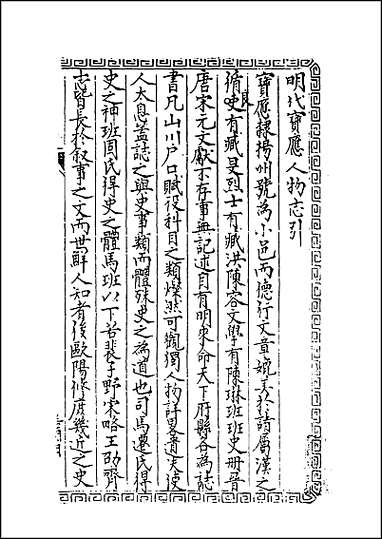 明代寶應人物志引
寶應隸揚州號為小邑而德行文章媲美於諸屬漢之
循吏有臧旻烈士有臧洪陳容文學有陳琳班班史冊晉
良
唐宋元文獻不存事無記述自有明來命天下府縣各為誌
書凡山川戶口賦役科目之類燦然可觀獨人物詳畧
人太息蓋誌之與史事類而體殊史之為道也司馬遷氏得
史之神班固氏得史之體馬班以下若裴子野宋略王劭齊
志皆長於叙事之文而世鮮人知者後歐陽脩庶幾近之史